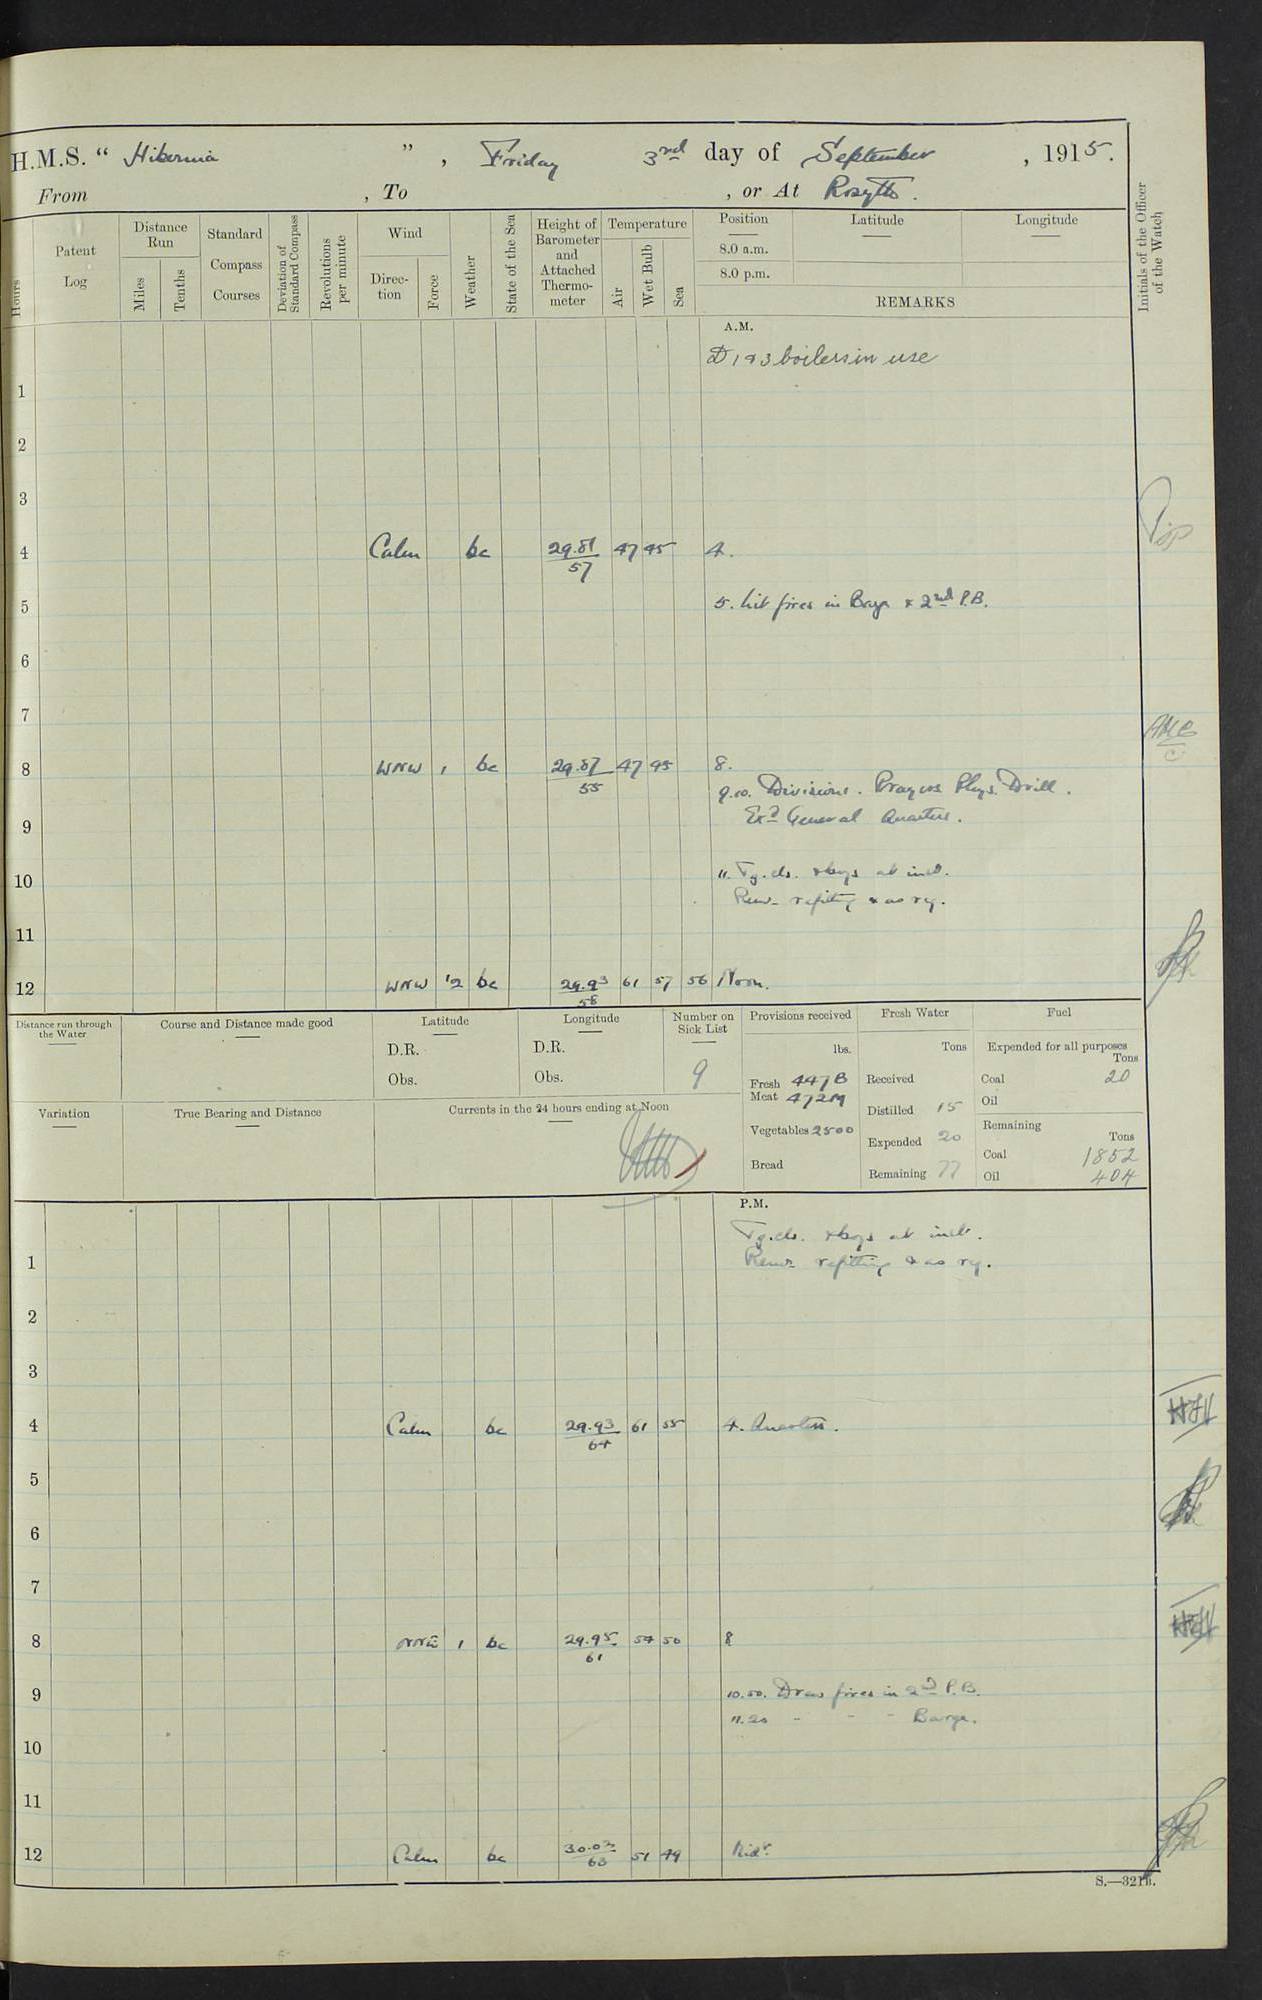 H.M.S. " Hibernia ", Friday 3rd day of September, 1915.
From , To , or At Rosyth.
Hours
Patent Log
Distance Run
Miles
Tenths
Standard Compass Courses
Deviation of Standard Compass
Revolutions per minute
Wind
Direction
Force
Weather
State of the Sea
Height of Barometer and Attached Thermometer
Temperature
Air
Wet Bulb
Sea
Position
8.0 a.m.
8.0 p.m.
Latitude
Longitude
REMARKS
Initials of the Officer of the Watch
A.M.
1 & 3 boilers in use
1
2
3
4 Calm bc 29.81 47 45 4.
57
5 5. Lit fires in Barge & 2nd P.B.
6
7
8 WNW 1 bc 29.87 47 45 8.
55
9.10. Divisions. Prayers Phys. Drill.
9 Exd General Quarters.
10 11. Tg. cls. & boys at inst.
Remr refitting & as rq.
11
12 WNW 1-2 bc 29.93 61 57 56 Noon.
58
Distance run through the Water
Course and Distance made good
Latitude
D.R.
Obs.
Longitude
D.R.
Obs.
Number on Sick List
9
Provisions received
lbs.
Fresh Meat 447 B
472 M
Vegetables 2500
Bread
Fresh Water
Tons
Received
Distilled 15
Expended 20
Remaining 77
Fuel
Expended for all purposes
Tons
Coal 20
Oil
Remaining
Tons
Coal 1852
Oil 404
Variation
True Bearing and Distance
Currents in the 24 hours ending at Noon
P.M.
Tg. cls. & boys at inst.
1 Remr refitting & as rq.
2
3
4 Calm bc 29.93 61 55 4. Quarters.
64
5
6
7
8 NNE 1 bc 29.95 54 50 8
61
9 10.50. Draw fires in 2d P.B.
11.20 - - - Barge.
10
11
12 Calm bc 30.02 51 49 Midt.
63
S.—321B.